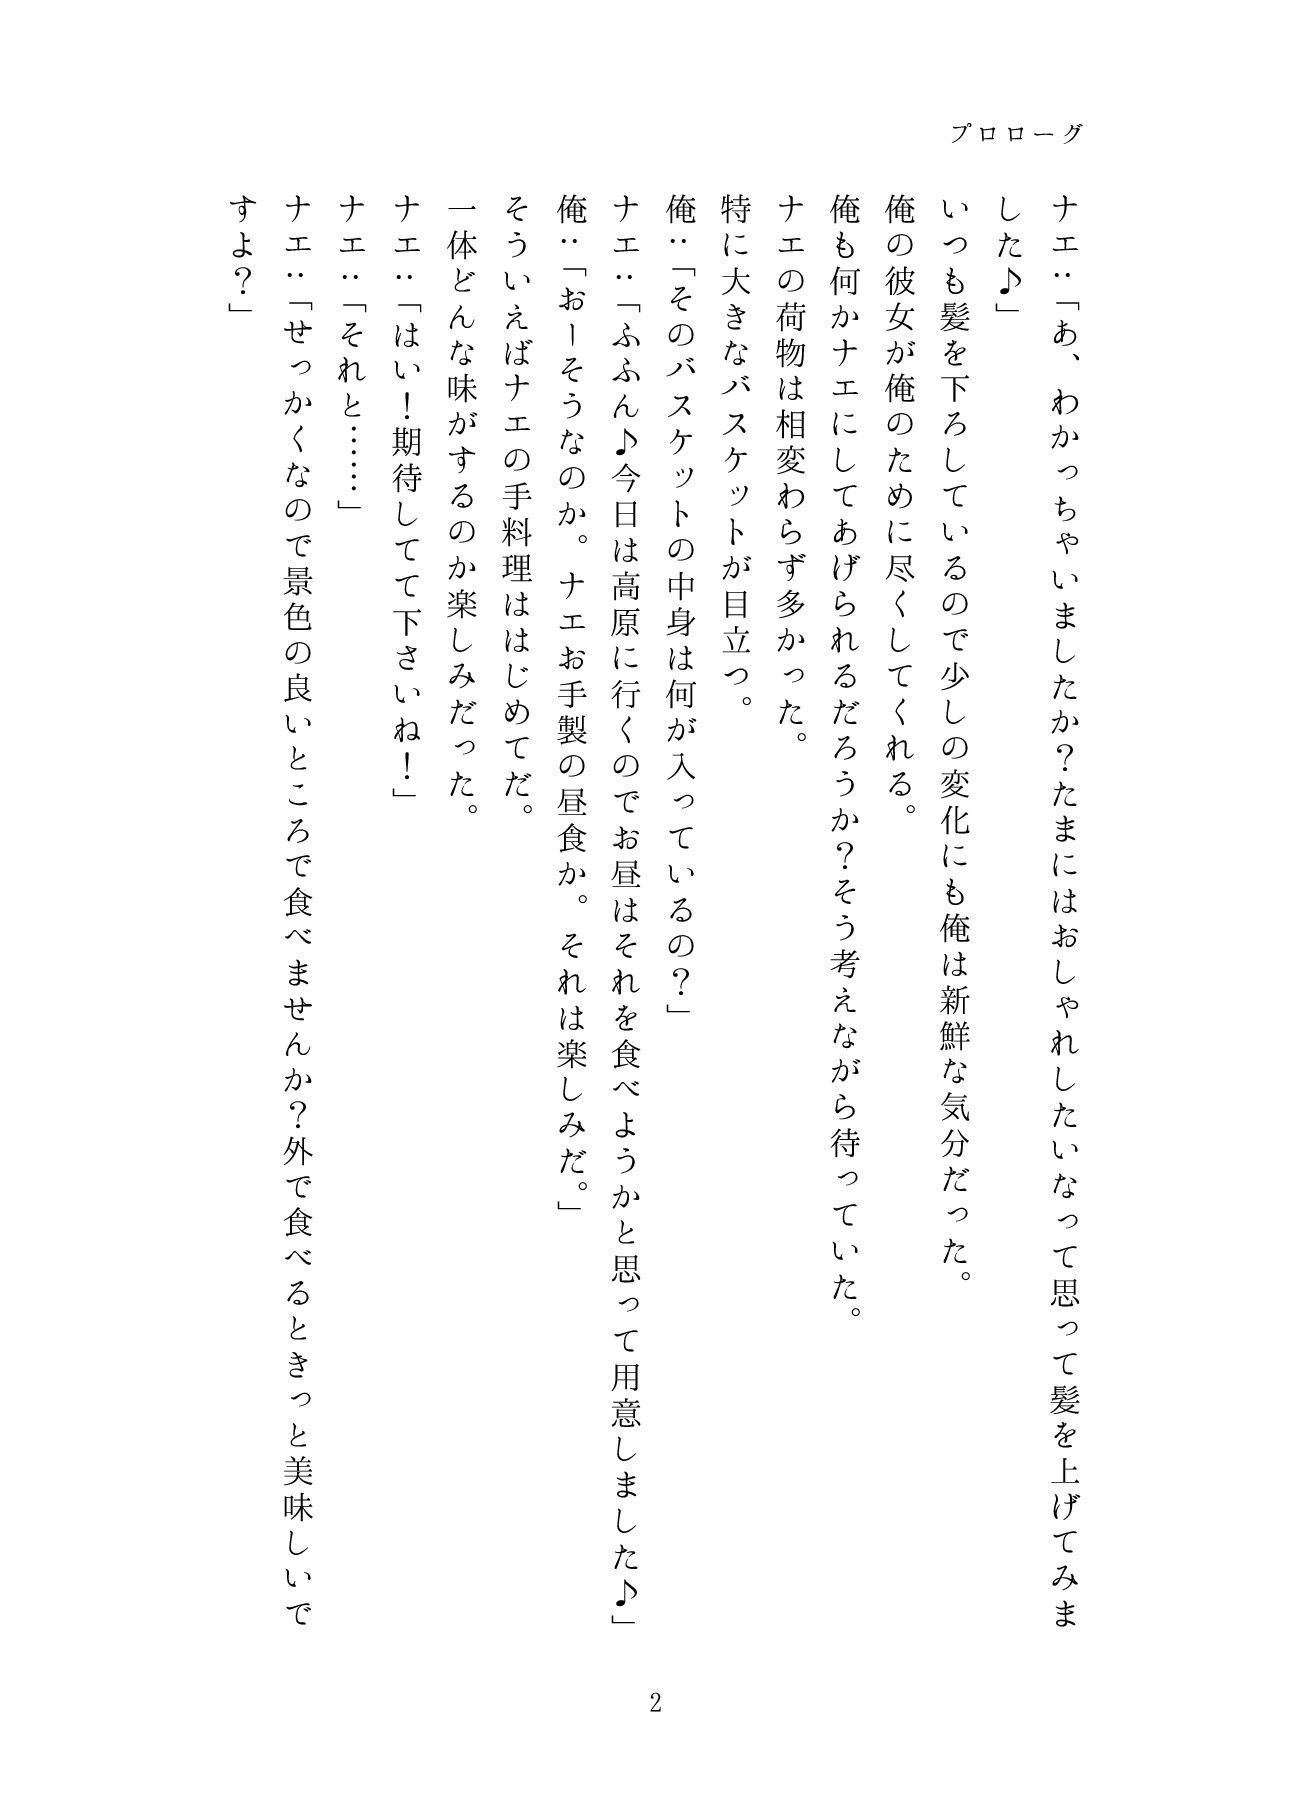 プロローグ
ナエ：「あ、わかっちゃいましたか？たまにはおしゃれしたいなって思って髪を上げてみま
した♪」
いつも髪を下ろしているので少しの変化にも俺は新鮮な気分だった。
俺の彼女が俺のために尽くしてくれる。
俺も何かナエにしてあげられるだろうか？そう考えながら待っていた。
ナエの荷物は相変わらず多かった。
特に大きなバスケットが目立つ。
俺：「そのバスケットの中身は何が入っているの？」
ナエ：「ふふん♪今日は高原に行くのでお昼はそれを食べようかと思って用意しました♪」
俺：「おーそうなのか。ナエお手製の昼食か。それは楽しみだ。」
そういえばナエの手料理ははじめてだ。
一体どんな味がするのか楽しみだった。
ナエ：「はい！期待してて下さいね！」
ナエ：「それと……」
ナエ：「せっかくなので景色の良いところで食べませんか？外で食べるときっと美味しいで
すよ？」
2